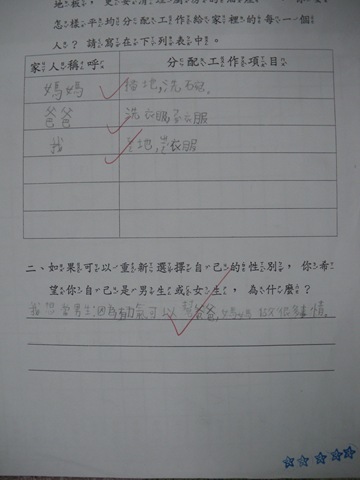 怎樣平均分配工作給家裡的每一個
人？請寫在下列表中。
家人稱呼 分配工作項目
媽媽 掃地,洗碗
爸爸 洗衣服,衣服
我 地,衣服
二、如果可以重新選擇自己的性別，你希
望你自己是男生或女生，為什麼？
我想當男生,因為力氣可以幫爸爸,媽媽做很多事情。